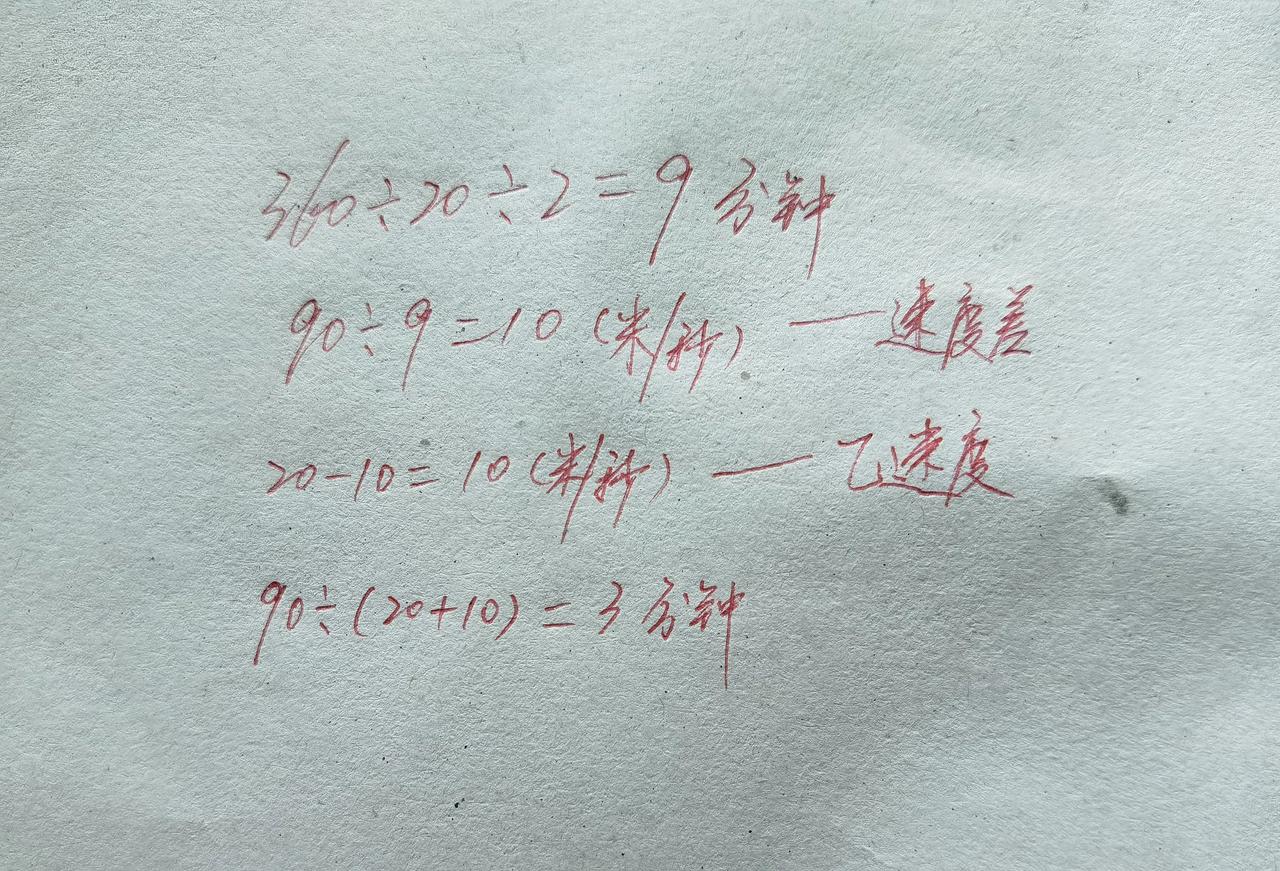 360÷20÷2=9 分钟
90÷9=10 (米/秒) —速度差
20-10=10(米/秒) — 乙速度
90÷(20+10)=3分钟